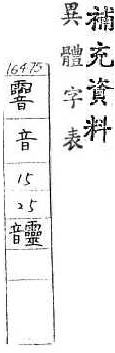 補充資料
異體字表
16475
音
15
25